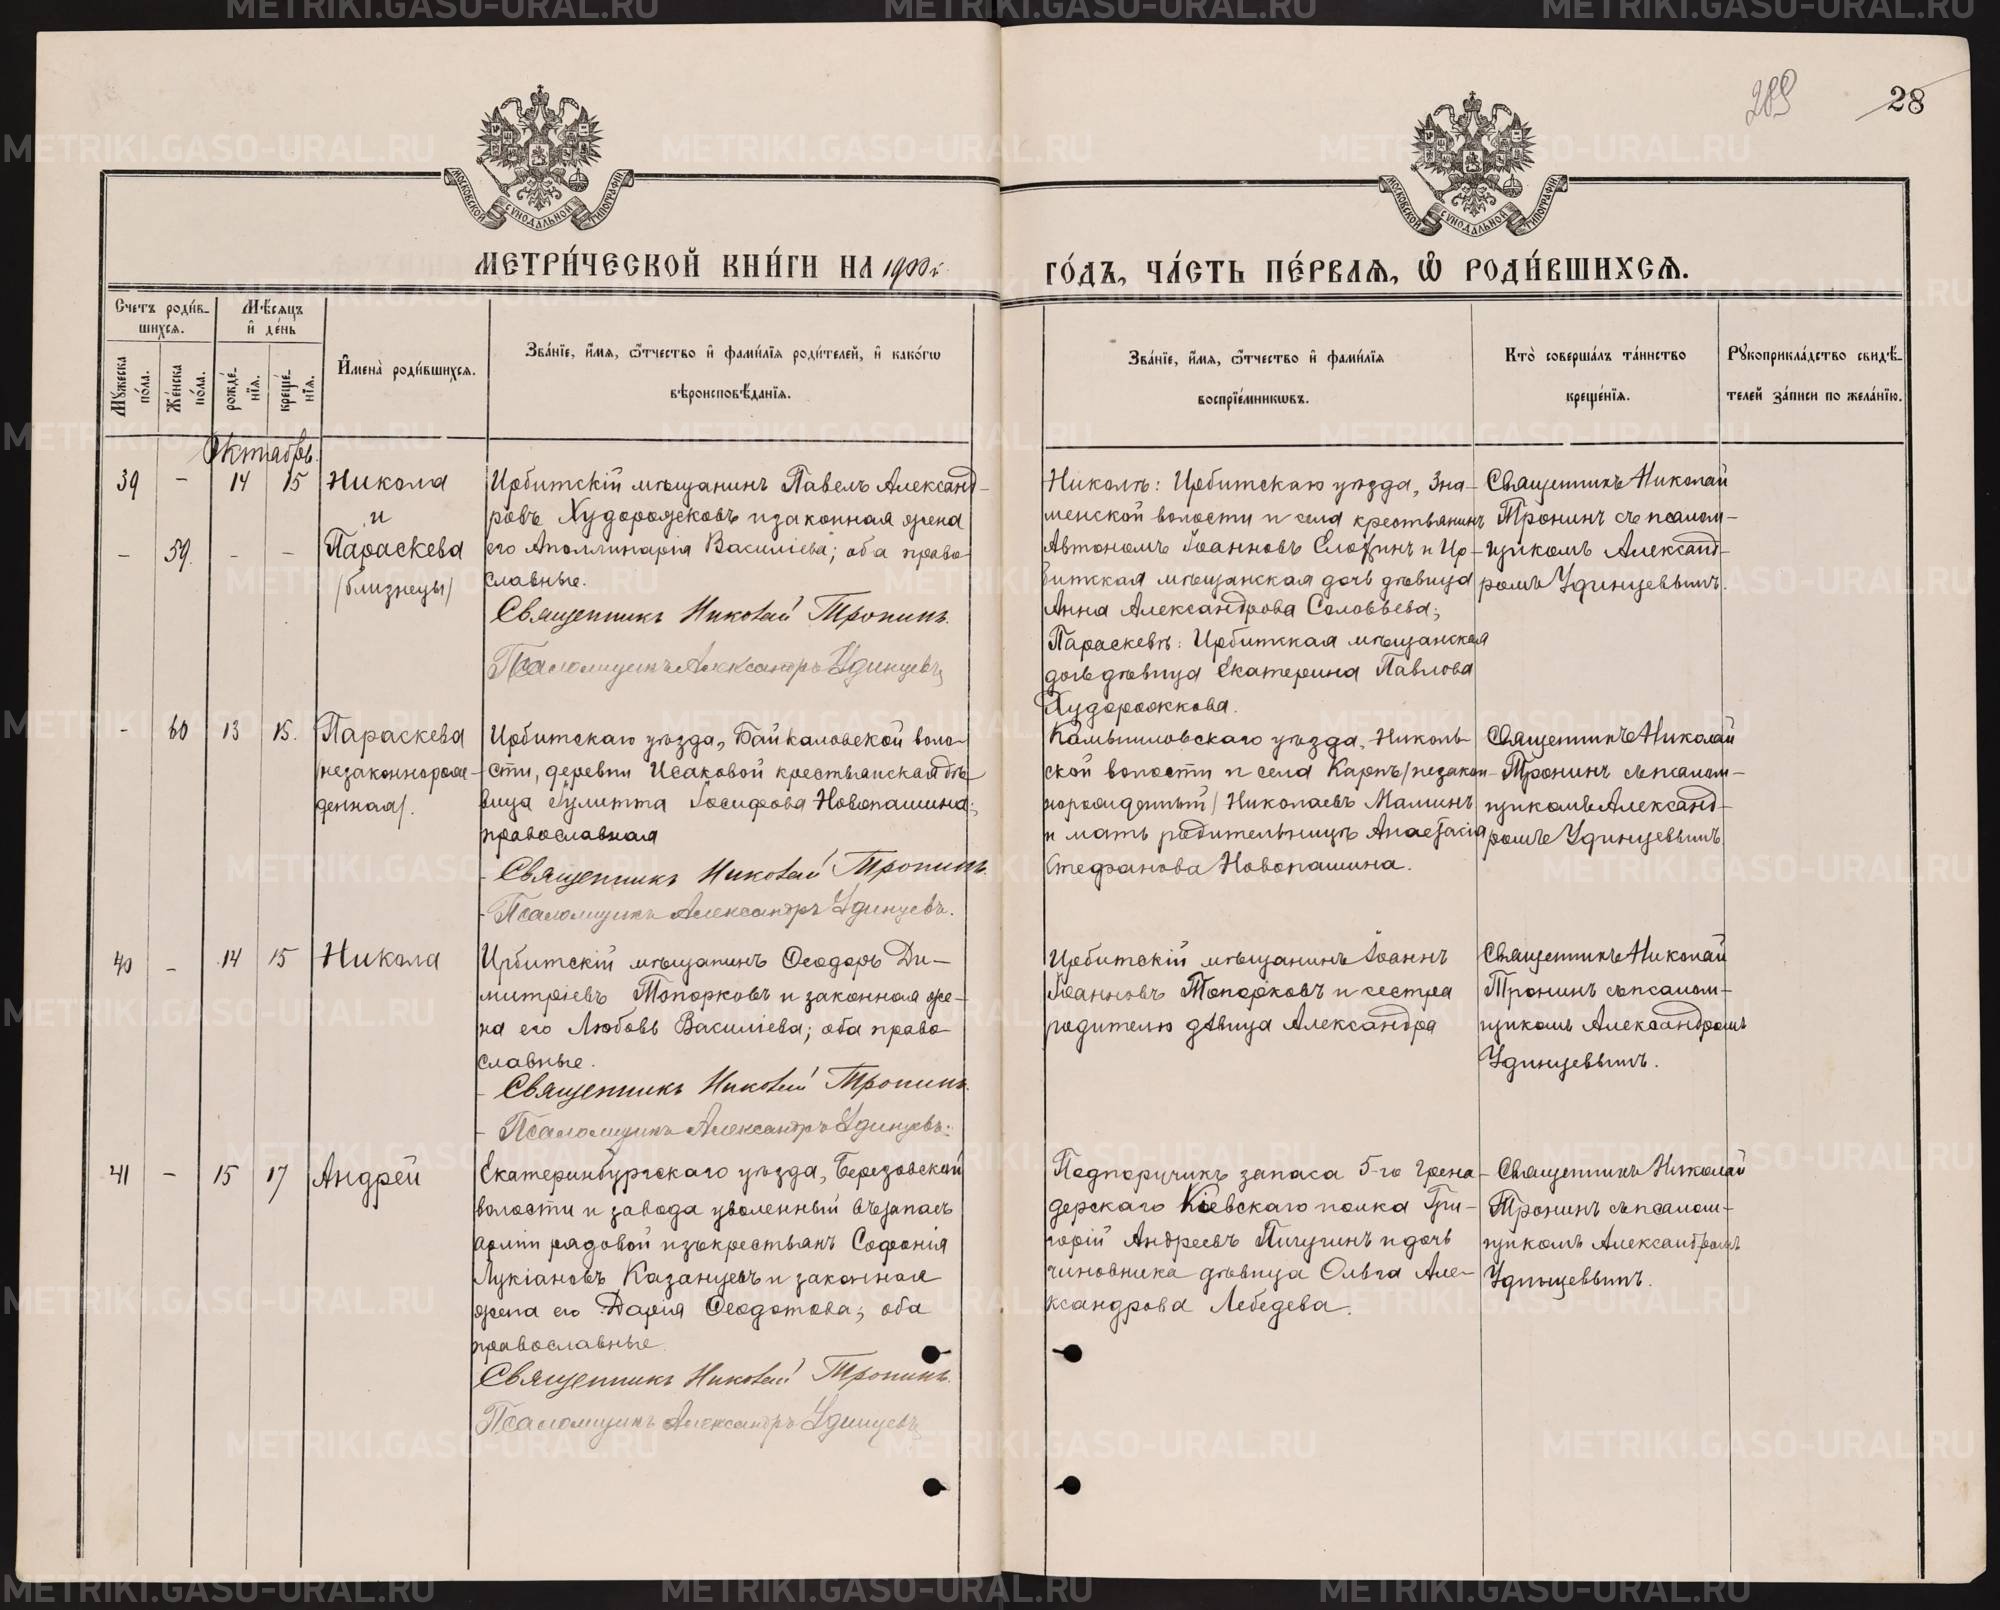 289
28
МОСКОВСКОЙ СѴНОДАЛЬНОЙ ТИПОГРАФІИ
МОСКОВСКОЙ СѴНОДАЛЬНОЙ ТИПОГРАФІИ
МЕТРИ́ЧЕСКОЙ КНИ́ГИ НА 1900 г.
ГО́ДЪ, ЧА́СТЬ ПЕ́РВАѦ, Ѡ҆ РОДИ́ВШИХСѦ.
Счетъ роди́в-
шихсѧ.
Мѣ́сѧцъ
и҆ де́нь
Мꙋ́жеска
по́ла.
Же́нска
по́ла.
рожде́-
нїѧ.
креще́-
нїѧ.
И҆мена̀ роди́вшихсѧ.
Зва́нїе, и҆́мѧ, ѻ҆́тчество и҆ фами́лїѧ роди́телей, и҆ како́гѡ
вѣроисповѣ́данїѧ.
Зва́нїе, и҆́мѧ, ѻ҆́тчество и҆ фами́лїѧ
воспрїе́мникѡвъ.
Кто̀ соверша́лъ та́инство
креще́нїѧ.
Рꙋкоприкла́дство свидѣ́-
телей за́писи по жела́нїю.
Октябрь.
39 - 14 15 Никола
и
- 59. - - Параскева
/близнецы/
Ирбитскій мѣщанинъ Павелъ Александ-
ровъ Худорожковъ и законная жена
его Аполлинарія Василіева; оба право-
славные.
Священникъ Николай Тронинъ.
Псаломщикъ Александръ Удинцевъ
Николѣ: Ирбитскаго уѣзда, Зна-
менской волости и села крестьянинъ
Автономъ Іоанновъ Слофинъ и Ир-
битская мѣщанская дочь дѣвица
Анна Александрова Соловьева;
Параскевѣ: Ирбитская мѣщанская
дочь дѣвица Екатерина Павлова
Худорожкова.
Священникъ Николай
Тронинъ съ псалом-
щикомъ Александ-
ромъ Удинцевымъ.
- 60 13 15. Параскева
/незаконнорож-
денная/.
Ирбитскаго уѣзда, Байкаловской воло-
сти, деревни Исаковой крестьянская дѣ-
вица Іулитта Іосифова Новопашина;
православная
- Священникъ Николай Тронинъ.
- Псаломщикъ Александръ Удинцевъ.
Камышловскаго уѣзда, Николь-
ской волости и села Карпъ /незакон-
норожденный/ Николаевъ Мамин
и мать родительницы Анастасія
Стефанова Новопашина.
Священникъ Николай
Тронинъ съ псалом-
щикомъ Александ-
ромъ Удинцевымъ
40 - 14 15 Никола
Ирбитскій мѣщанинъ Ѳеодоръ Ди-
митріевъ Топорковъ и законная же-
на его Любовь Василіева; оба право-
славные.
- Священникъ Николай Тронинъ.
- Псаломщикъ Александръ Удинцевъ.
Ирбитскій мѣщанинъ Іоаннъ
Іоанновъ Топорковъ и сестра
родителю дѣвица Александра
Священникъ Николай
Тронинъ съ псалом-
щикомъ Александромъ
Удинцевымъ.
41 - 15 17 Андрей
Екатеринбургскаго уѣзда, Березовской
волости и завода уволенный въ запасъ
арміи рядовой изъ крестьянъ Софонія
Лукіановъ Казанцевъ и законная
жена его Дарія Ѳеодотова; оба
православные.
Священникъ Николай Тронинъ.
Псаломщикъ Александръ Удинцевъ
Подпоручикъ запаса 5-го грена-
дерскаго Кіевскаго полка Гри-
горій Андреевъ Пичугинъ и дочь
чиновника дѣвица Ольга Але-
ксандрова Лебедева.
Священникъ Николай
Тронинъ съ псалом-
щикомъ Александромъ
Удинцевымъ.
METRIKI.GASO-URAL.RU